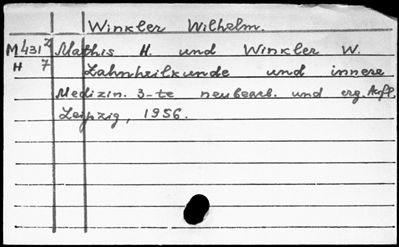 Winkler Wilhelm.
M431² Mathis H. und Winkler W.
H 7 Zahnheilkunde und innere
Medizin. 3-te neubearb. und erg. Aufl
Leipzig, 1956.